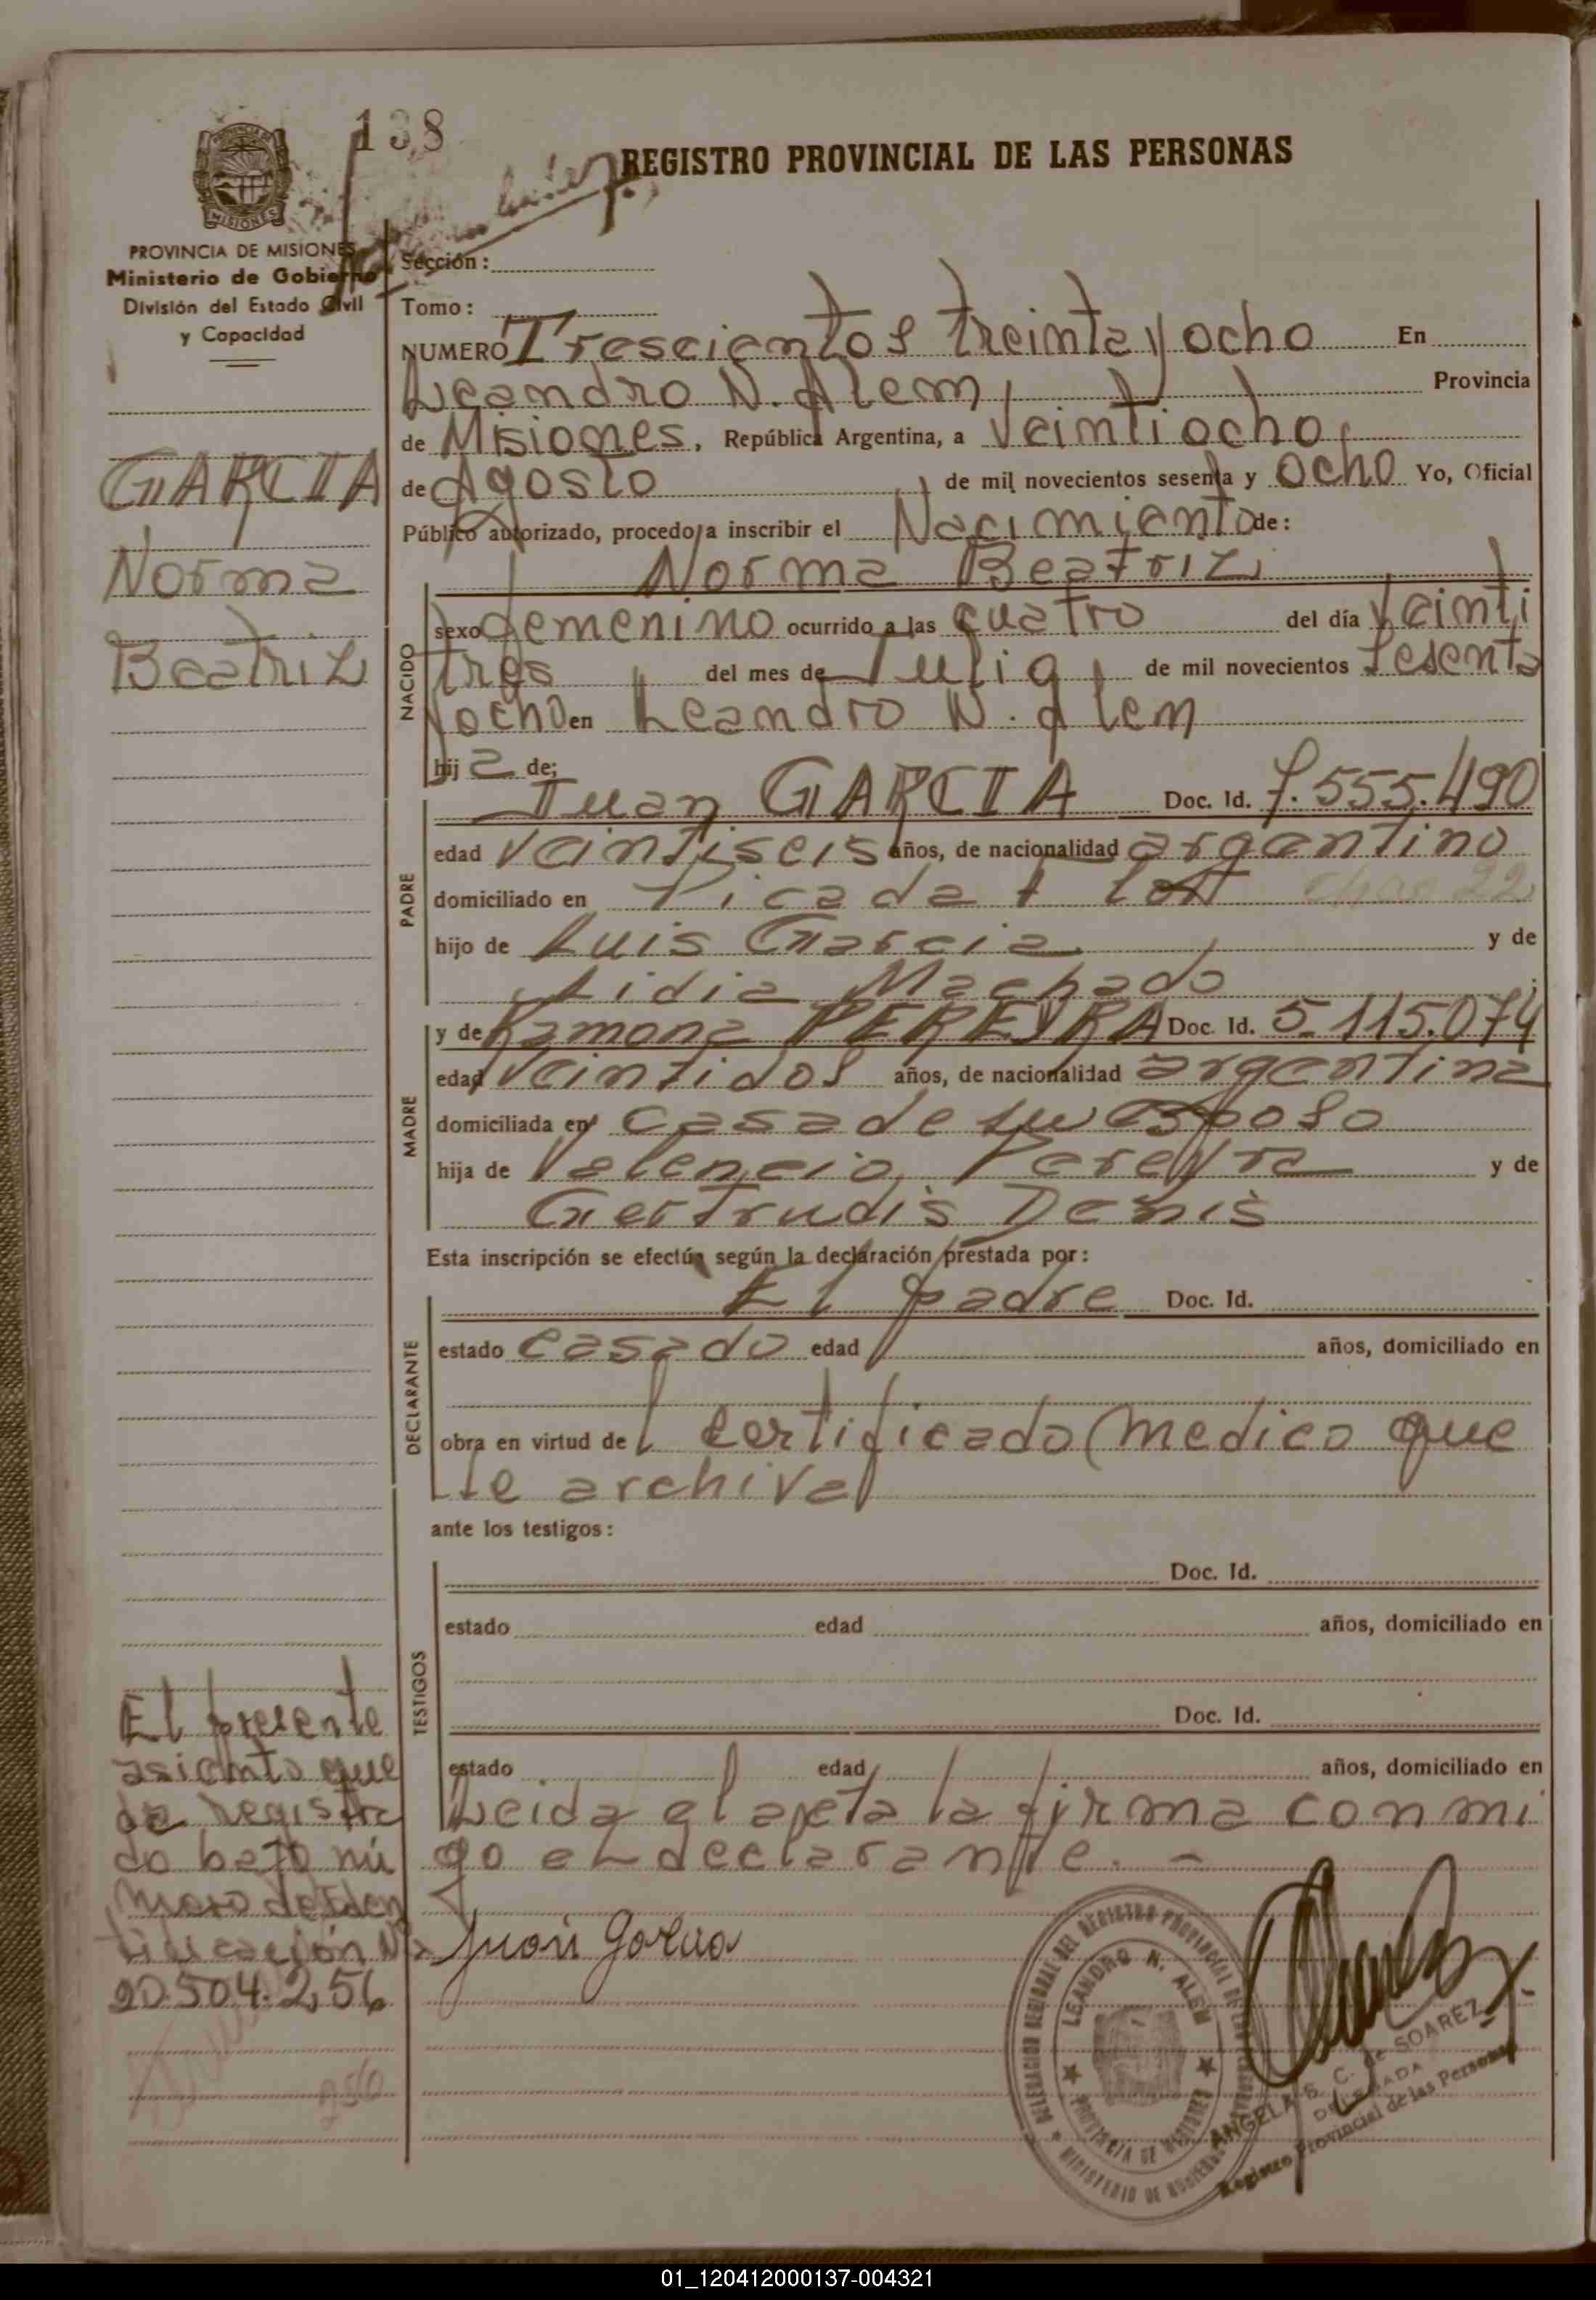 138
REGISTRO PROVINCIAL DE LAS PERSONAS
PROVINCIA DE MISIONES
MISIONES
PROVINCIA DE MISIONES
Ministerio de Gobierno
División del Estado Civil
y Capacidad
GARCIA
Norma
Beatriz
Sección:
Tomo:
NUMERO Trescientos treinta y ocho En
Leandro N. Alem, Provincia
de Misiones, República Argentina, a Veintiocho
de Agosto de mil novecientos sesenta y ocho Yo, Oficial
Público autorizado, procedo a inscribir el Nacimiento de:
Norma Beatriz
NACIDO
sexo femenino ocurrido a las cuatro del día Veinti
tres del mes de Julio de mil novecientos sesenta
y ocho en Leandro N. Alem
hija de:
PADRE
Juan GARCIA Doc. Id. 7.555.490
edad Veintiseis años, de nacionalidad argentino
domiciliado en Picada
hijo de Luis Garcia y de
Lidia Machado
MADRE
y de Ramona PEREYRA Doc. Id. 5.115.074
edad Veintidos años, de nacionalidad argentina
domiciliada en casa de su esposo
hija de Valencio Pereyra y de
Gertrudis Denis
Esta inscripción se efectúa según la declaración prestada por:
DECLARANTE
El padre Doc. Id.
estado casado edad años, domiciliado en
obra en virtud del certificado medico que
se archiva
ante los testigos:
TESTIGOS
Doc. Id.
estado edad años, domiciliado en
Doc. Id.
estado edad años, domiciliado en
Leida el acta la firma conmi
go el declarante. -
Juan Garcia
El presente
asiento que
da registra
do bajo nú
mero de Iden
tificación Nº
20.504.256
256
DELEGACION REGIONAL DEL REGISTRO PROVINCIAL DE LAS PERSONAS
LEANDRO N. ALEM
PROVINCIA DE MISIONES
MINISTERIO DE GOBIERNO
ANGELA S. C. de SOAREZ
DELEGADA
Registro Provincial de las Personas
01_120412000137-004321